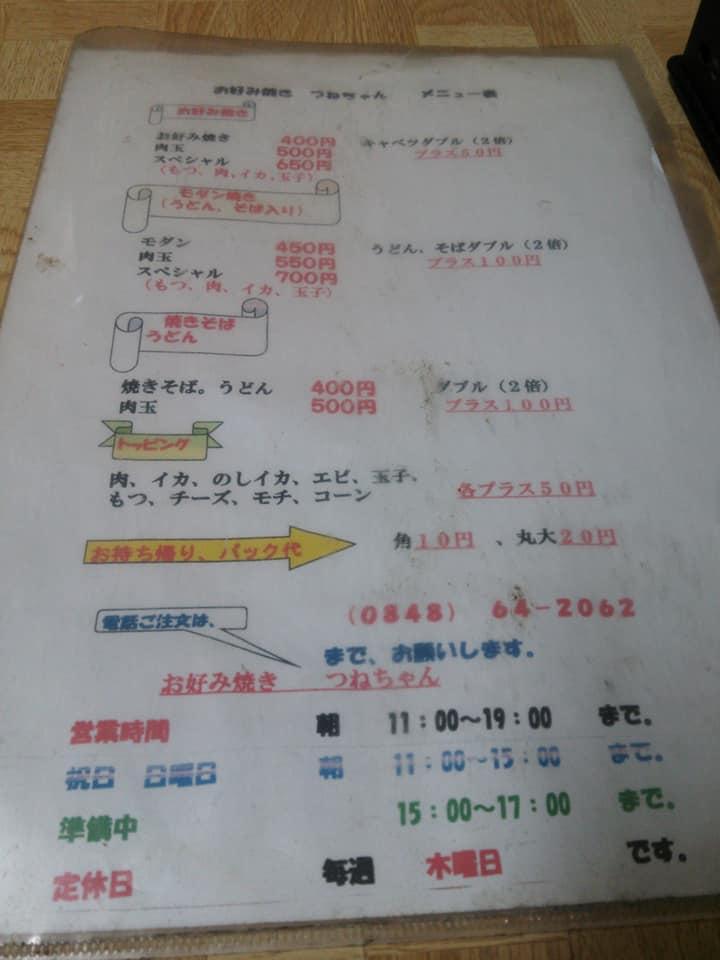 お好み焼き つねちゃん メニュー表
お好み焼き
お好み焼き 400円 キャベツダブル（2倍）
肉玉 500円 プラス50円
スペシャル 650円
（もつ、肉、イカ、玉子）
モダン焼き
（うどん、そば入り）
モダン 450円 うどん、そばダブル（2倍）
肉玉 550円 プラス100円
スペシャル 700円
（もつ、肉、イカ、玉子）
焼きそば
うどん
焼きそば。うどん 400円 ダブル（2倍）
肉玉 500円 プラス100円
トッピング
肉、イカ、のしイカ、エビ、玉子、
もつ、チーズ、モチ、コーン 各プラス50円
お持ち帰り、パック代 角10円 、丸大20円
電話ご注文は、 （0848） 64－2062
まで、お願いします。
お好み焼き つねちゃん
営業時間 朝 11：00～19：00 まで。
祝日 日曜日 朝 11：00～15：00 まで。
準備中 15：00～17：00 まで。
定休日 毎週 木曜日 です。